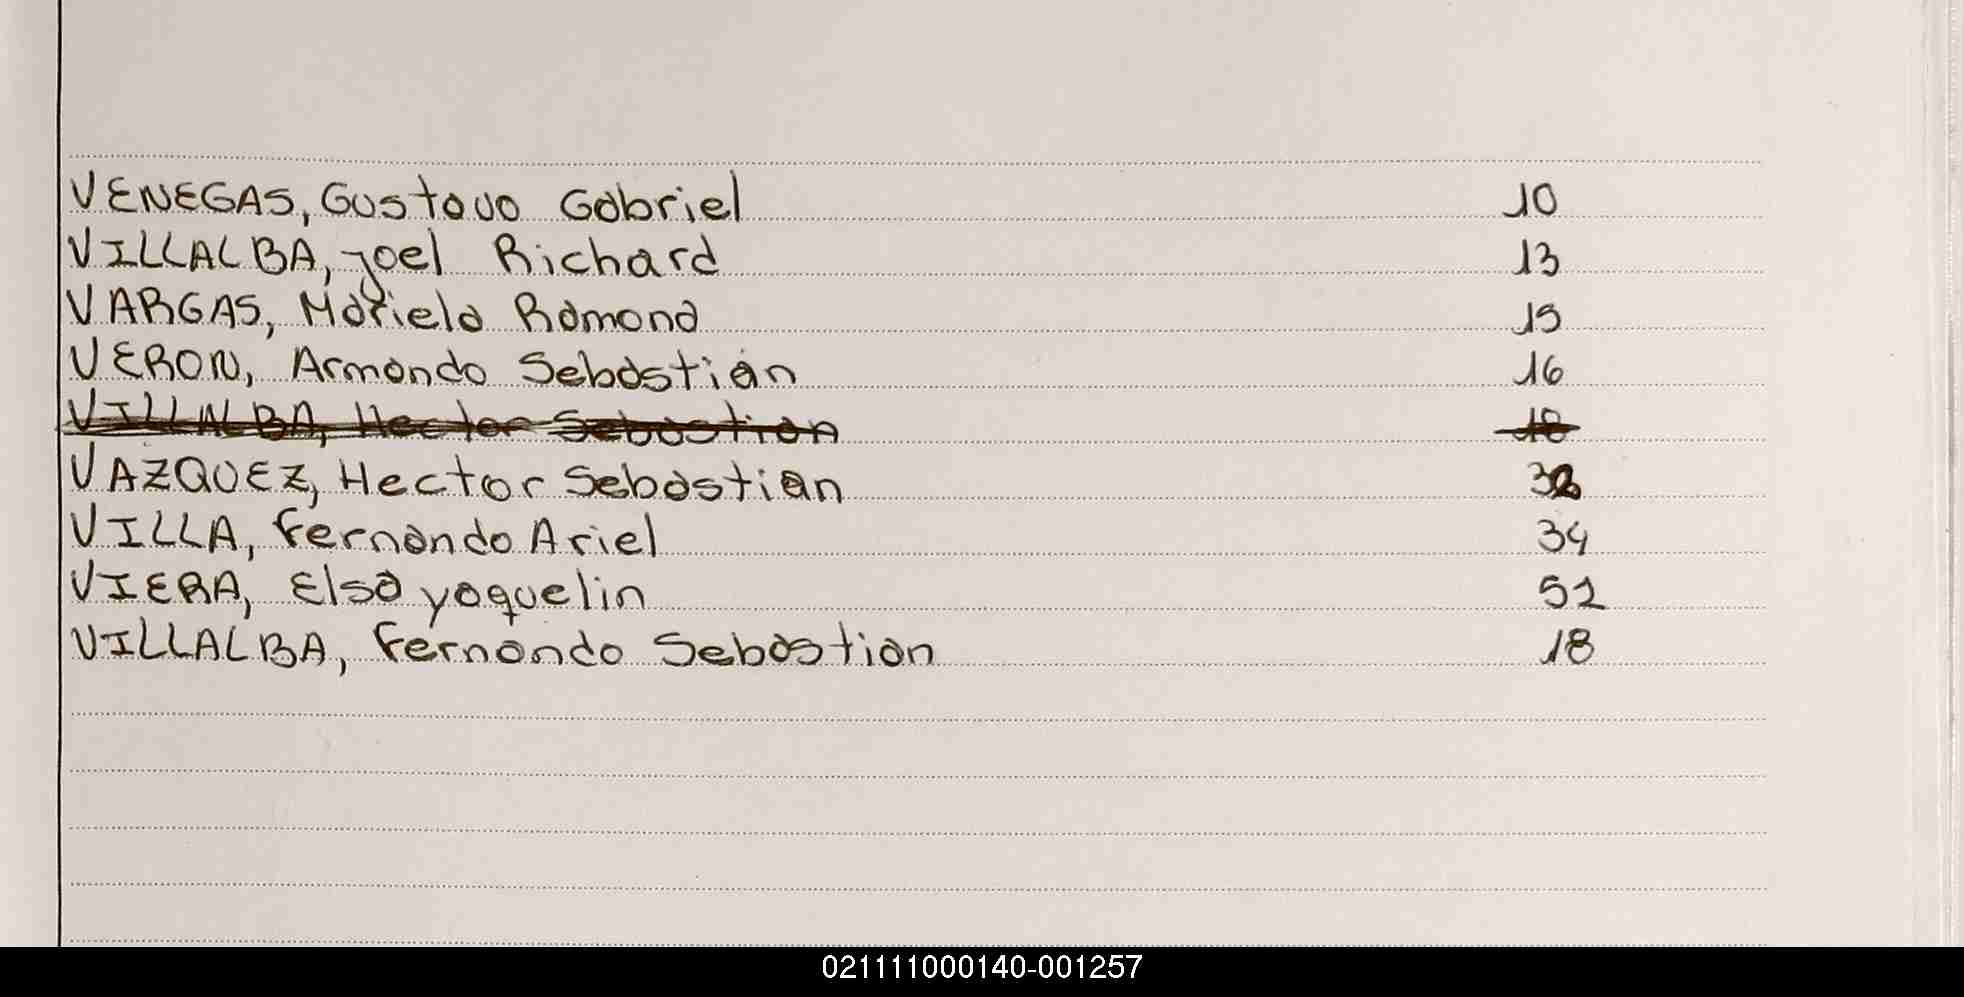 VENEGAS, Gustavo Gabriel 10
VILLALBA, Joel Richard 13
VARGAS, Mariela Ramona 15
VERON, Armando Sebastián 16
VILLALBA, Hector Sebastian 18
VAZQUEZ, Hector Sebastian 32
VILLA, Fernando Ariel 34
VIERA, Elsa yaquelin 52
VILLALBA, Fernando Sebastian 18
021111000140-001257